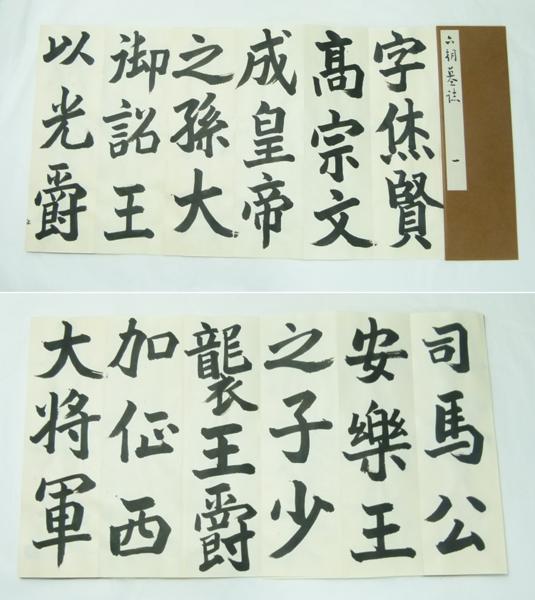 六朝墓誌 一
字烋賢
髙宗文
成皇帝
之孫大
御詔王
以光爵
司馬公
安樂王
之子少
襲王爵
加征西
大将軍